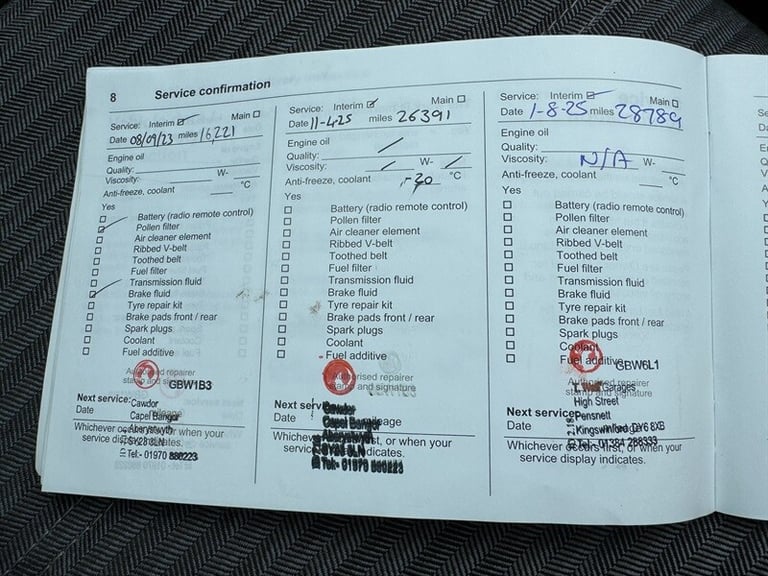 8 Service confirmation
Service: Interim Main
Date 08/09/23 miles 16,221
Engine oil
Quality:
Viscosity: W-
Anti-freeze, coolant °C
Yes
Battery (radio remote control)
Pollen filter
Air cleaner element
Ribbed V-belt
Toothed belt
Fuel filter
Transmission fluid
Brake fluid
Tyre repair kit
Brake pads front / rear
Spark plugs
Coolant
Fuel additive
Authorised repairer
stamp and signature
GBW1B3
Next service:
Cawdor
Date
Capel Bangor
mileage
Aberystwyth
Whichever occurs first, or when your
SY23 3LN
service display indicates.
Tel:- 01970 880223
Service: Interim Main
Date 11-4-25 miles 26391
Engine oil
Quality:
Viscosity: W-
Anti-freeze, coolant -20 °C
Yes
Battery (radio remote control)
Pollen filter
Air cleaner element
Ribbed V-belt
Toothed belt
Fuel filter
Transmission fluid
Brake fluid
Tyre repair kit
Brake pads front / rear
Spark plugs
Coolant
Fuel additive
Authorised repairer
stamp and signature
Next service
Cawdor
Date
Capel Bangor
mileage
Aberystwyth
Whichever occurs first, or when your
service display indicates.
Tel:- 01970
Service: Interim Main
Date 1-8-25 miles 28789
Engine oil
Quality:
Viscosity: N/A W-
Anti-freeze, coolant °C
Yes
Battery (radio remote control)
Pollen filter
Air cleaner element
Ribbed V-belt
Toothed belt
Fuel filter
Transmission fluid
Brake fluid
Tyre repair kit
Brake pads front / rear
Spark plugs
Coolant
Fuel additive
GBW6L1
Authorised repairer
stamp and signature
Garages
High Street
Next service:
Pensnett
Date
Kingswinford DY6 8XB
Tel:- 01384 288333
Whichever occurs first, or when your
service display indicates.